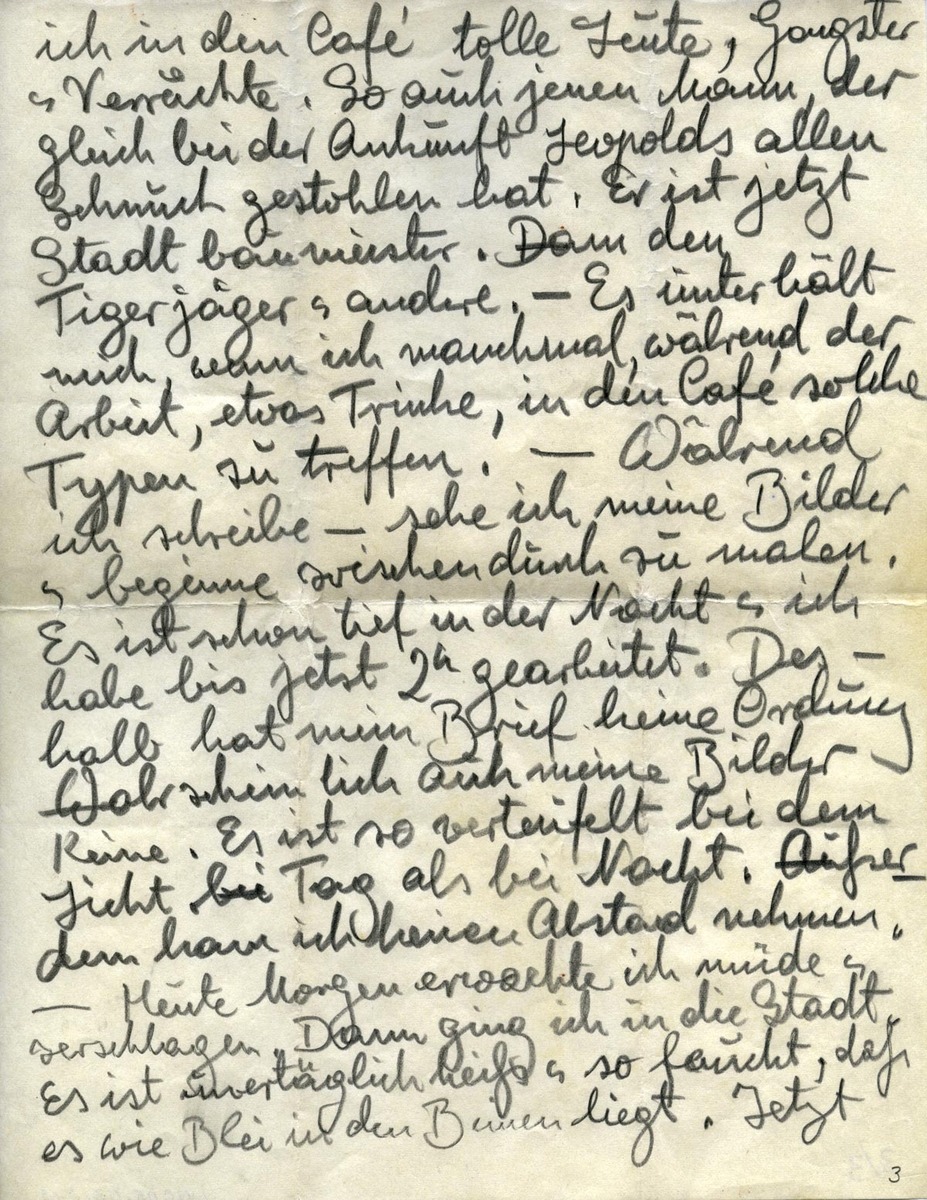 ich in den Café tolle Leute, Gangster
u Verrückte. So auch jenen Mann, der
gleich bei der Ankunft Leopolds allen
Schmuck gestohlen hat. Er ist jetzt
Stadt baumeister. Dann den
Tigerjäger u andere. — Es unterhält
mich, wenn ich manchmal, während der
Arbeit, etwas Trinke, in den Café solche
Typen zu treffen. — Während
ich schreibe — sehe ich meine Bilder
u beginne zwischendurch zu malen.
Es ist schon tief in der Nacht u ich
habe bis jetzt 2h gearbeitet. Des –
halb hat mein Brief keine Ordnung
Wahrscheinlich auch meine Bilder
Keine. Es ist so verteufelt bei dem
Licht bei Tag als bei Nacht. Außer
dem kann ich keinen Abstand nehmen.
— Heute Morgen erwachte ich müde u
zerschlagen. Dann ging ich in die Stadt.
Es ist unverträglich heiß u so feucht, daß
es wie Blei in den Beinen liegt. Jetzt
3